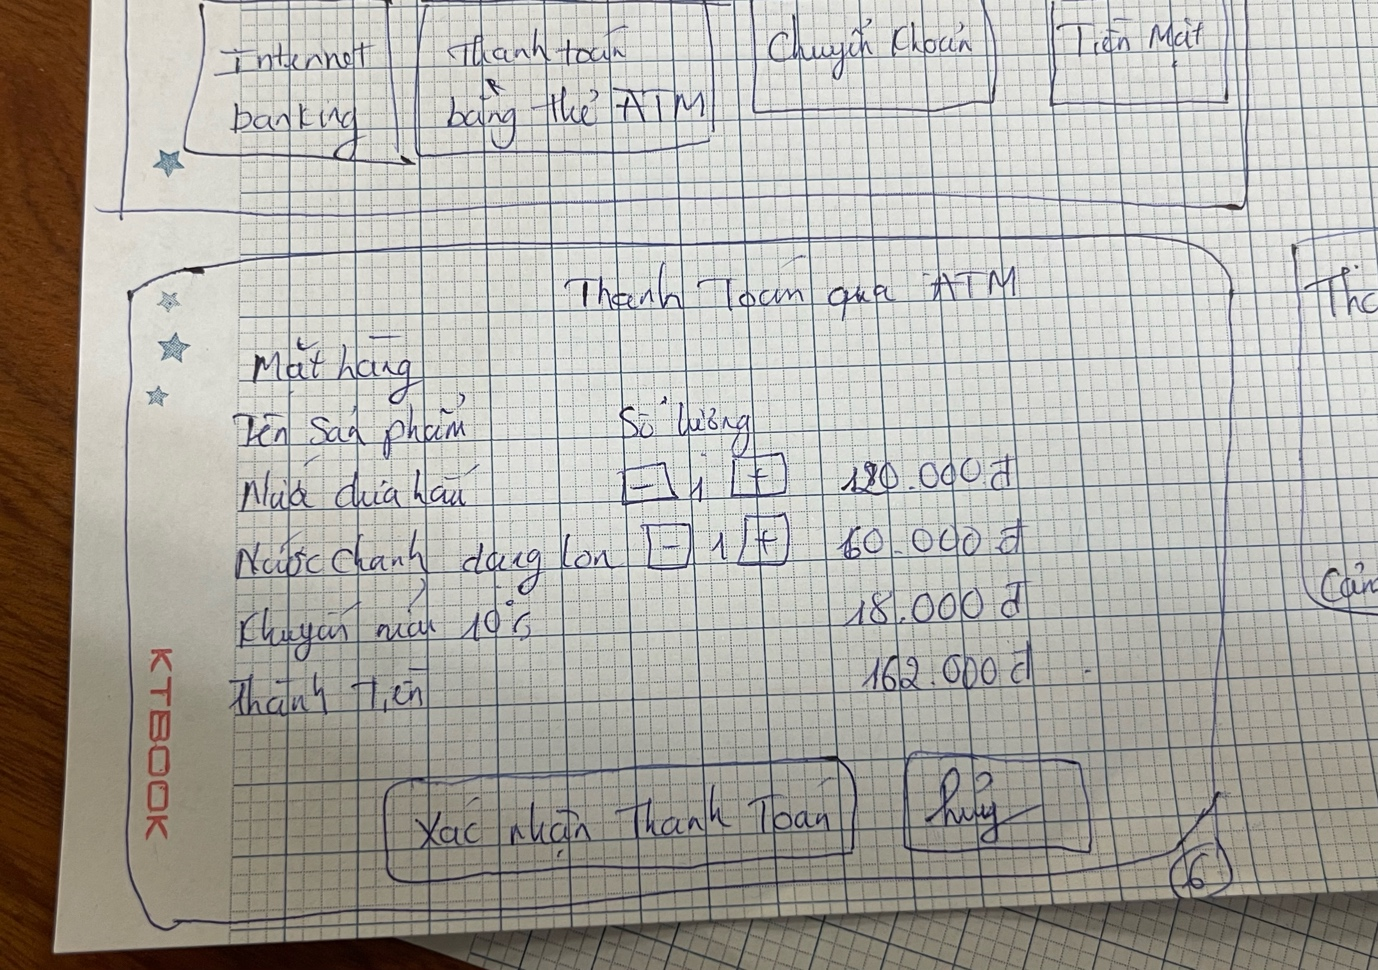 Internet
banking
Thanh toán
bằng thẻ ATM
Chuyển khoản
Tiền Mặt
Thanh Toán qua ATM
Mặt hàng
Tên sản phẩm Số lượng
dưa hấu - 1 + 120.000 đ
Nước chanh dạng lon - 1 + 60.000 đ
Khuyến mãi 10% 18.000 đ
Thành Tiền 162.000 đ
Xác nhận Thanh Toán
hủy
6
KTBOOK